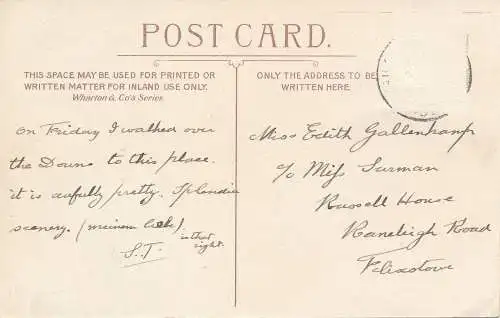 POST CARD.
THIS SPACE MAY BE USED FOR PRINTED OR
WRITTEN MATTER FOR INLAND USE ONLY.
Wharton & Co's Series.
On Friday I walked over
the Downs to this place.
it is awfully pretty. Splendid
scenery. (
is that
right.
S.T.
ONLY THE ADDRESS TO BE
WRITTEN HERE.
Miss Edith Gallenkamp
c/o Miss Surman
Russell House
Raneleigh Road
Felixstowe